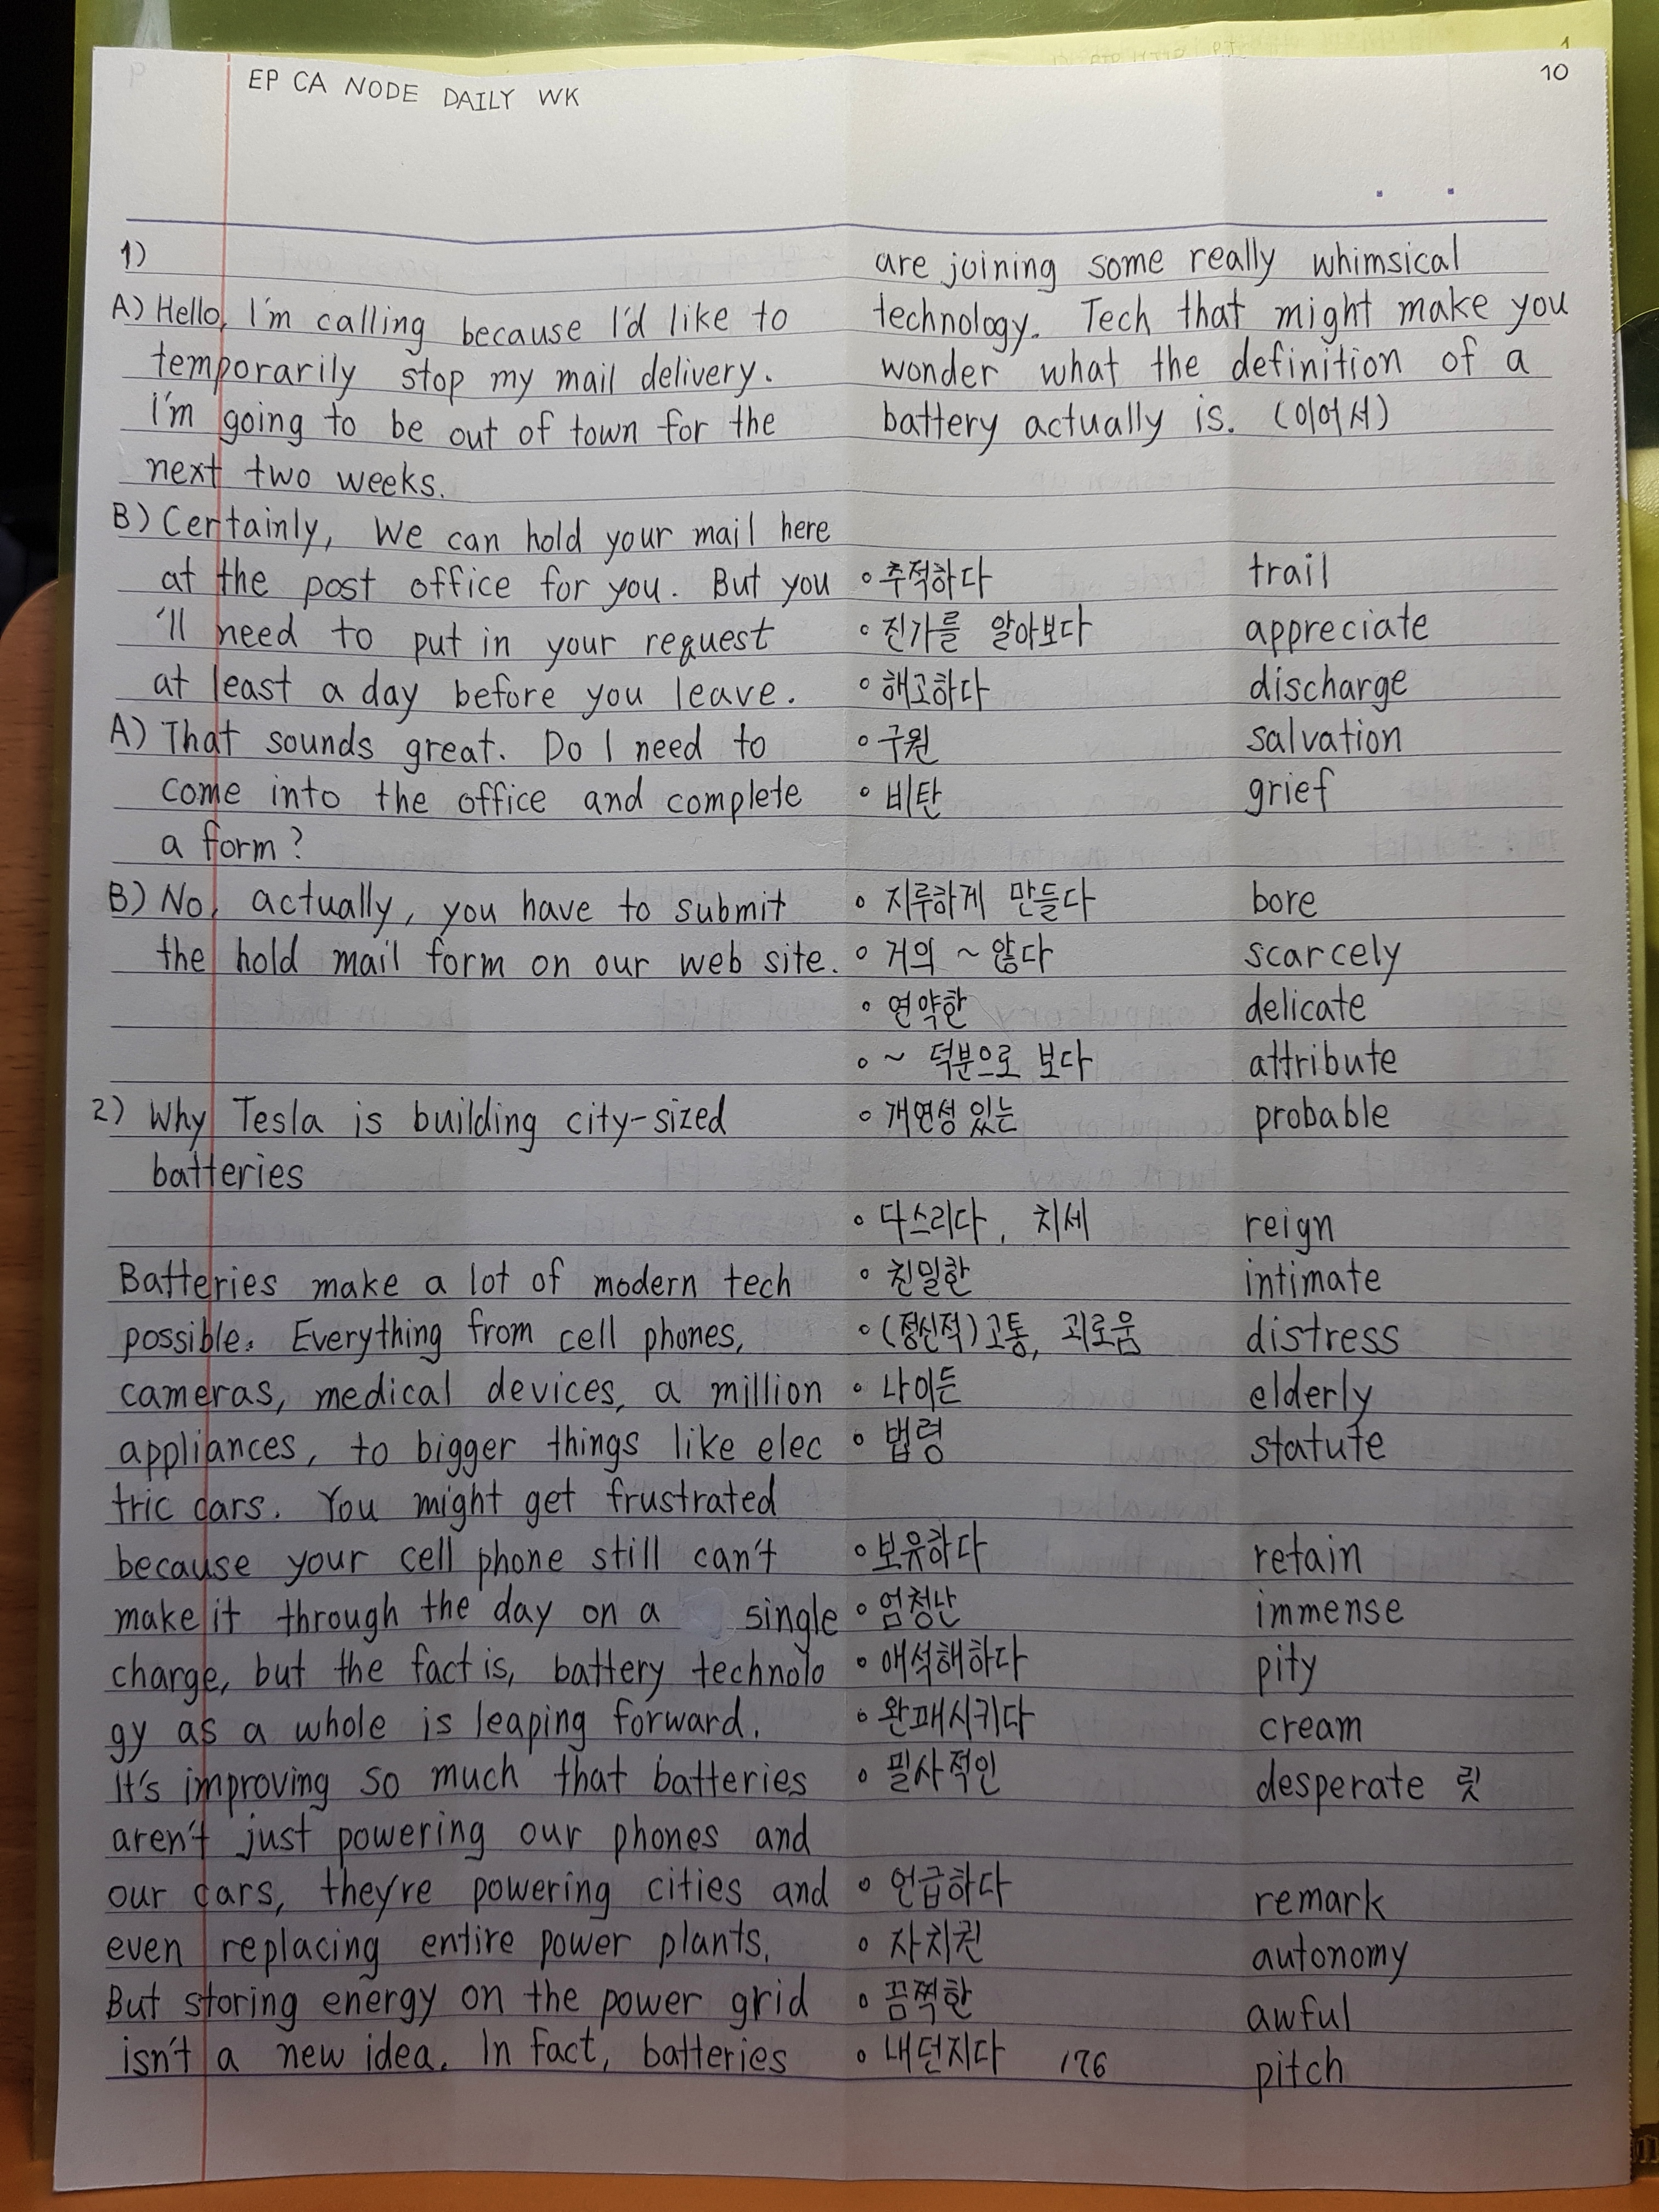 EP CA NODE DAILY WK
10
1)
A) Hello, I'm calling because I'd like to
temporarily stop my mail delivery.
I'm going to be out of town for the
next two weeks.
B) Certainly, We can hold your mail here
at the post office for you. But you
'll need to put in your request
at least a day before you leave.
A) That sounds great. Do I need to
come into the office and complete
a form?
B) No, actually, you have to submit
the hold mail form on our web site.
2) Why Tesla is building city-sized
batteries
Batteries make a lot of modern tech
possible. Everything from cell phones,
cameras, medical devices, a million
appliances, to bigger things like elec
tric cars. You might get frustrated
because your cell phone still can't
make it through the day on a single
charge, but the fact is, battery technolo
gy as a whole is leaping forward.
It's improving so much that batteries
aren't just powering our phones and
our cars, they're powering cities and
even replacing entire power plants.
But storing energy on the power grid
isn't a new idea. In fact, batteries
are joining some really whimsical
technology. Tech that might make you
wonder what the definition of a
battery actually is. (이어서)
◦ 추적하다 trail
◦ 진가를 알아보다 appreciate
◦ 해고하다 discharge
◦ 구원 salvation
◦ 비탄 grief
◦ 지루하게 만들다 bore
◦ 거의 ~ 않다 scarcely
◦ 연약한 delicate
◦ ~ 덕분으로 보다 attribute
◦ 개연성 있는 probable
◦ 다스리다, 치세 reign
◦ 친밀한 intimate
◦ (정신적) 고통, 괴로움 distress
◦ 나이든 elderly
◦ 법령 statute
◦ 보유하다 retain
◦ 엄청난 immense
◦ 애석해하다 pity
◦ 완패시키다 cream
◦ 필사적인 desperate 릿
◦ 언급하다 remark
◦ 자치권 autonomy
◦ 끔찍한 awful
◦ 내던지다 176 pitch